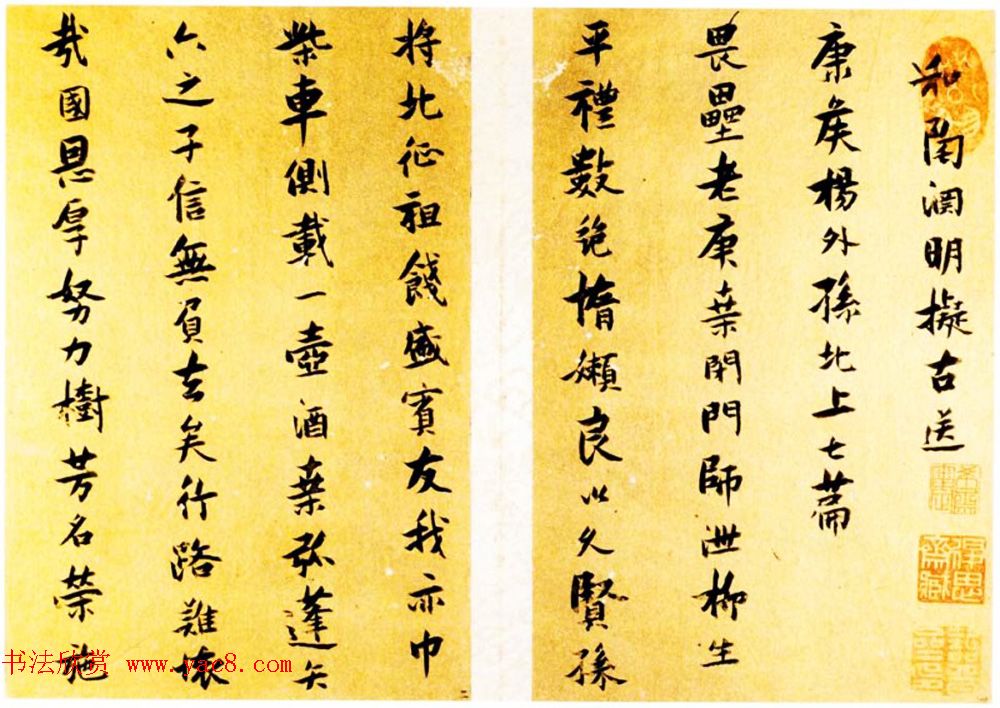 和陶渊明擬古送
康侯楊外孫北上七篇
畏壘老庚桒閉門師泄柳生
平禮數絶惰嬾良以久賢孫
将北征祖餞盛賓友我亦巾
柴車側載一壺酒桒弧蓬矢
六之子信無負去矣行路難懐
哉國恩厚努力樹芳名榮施
书法欣赏 www.yac8.com
二